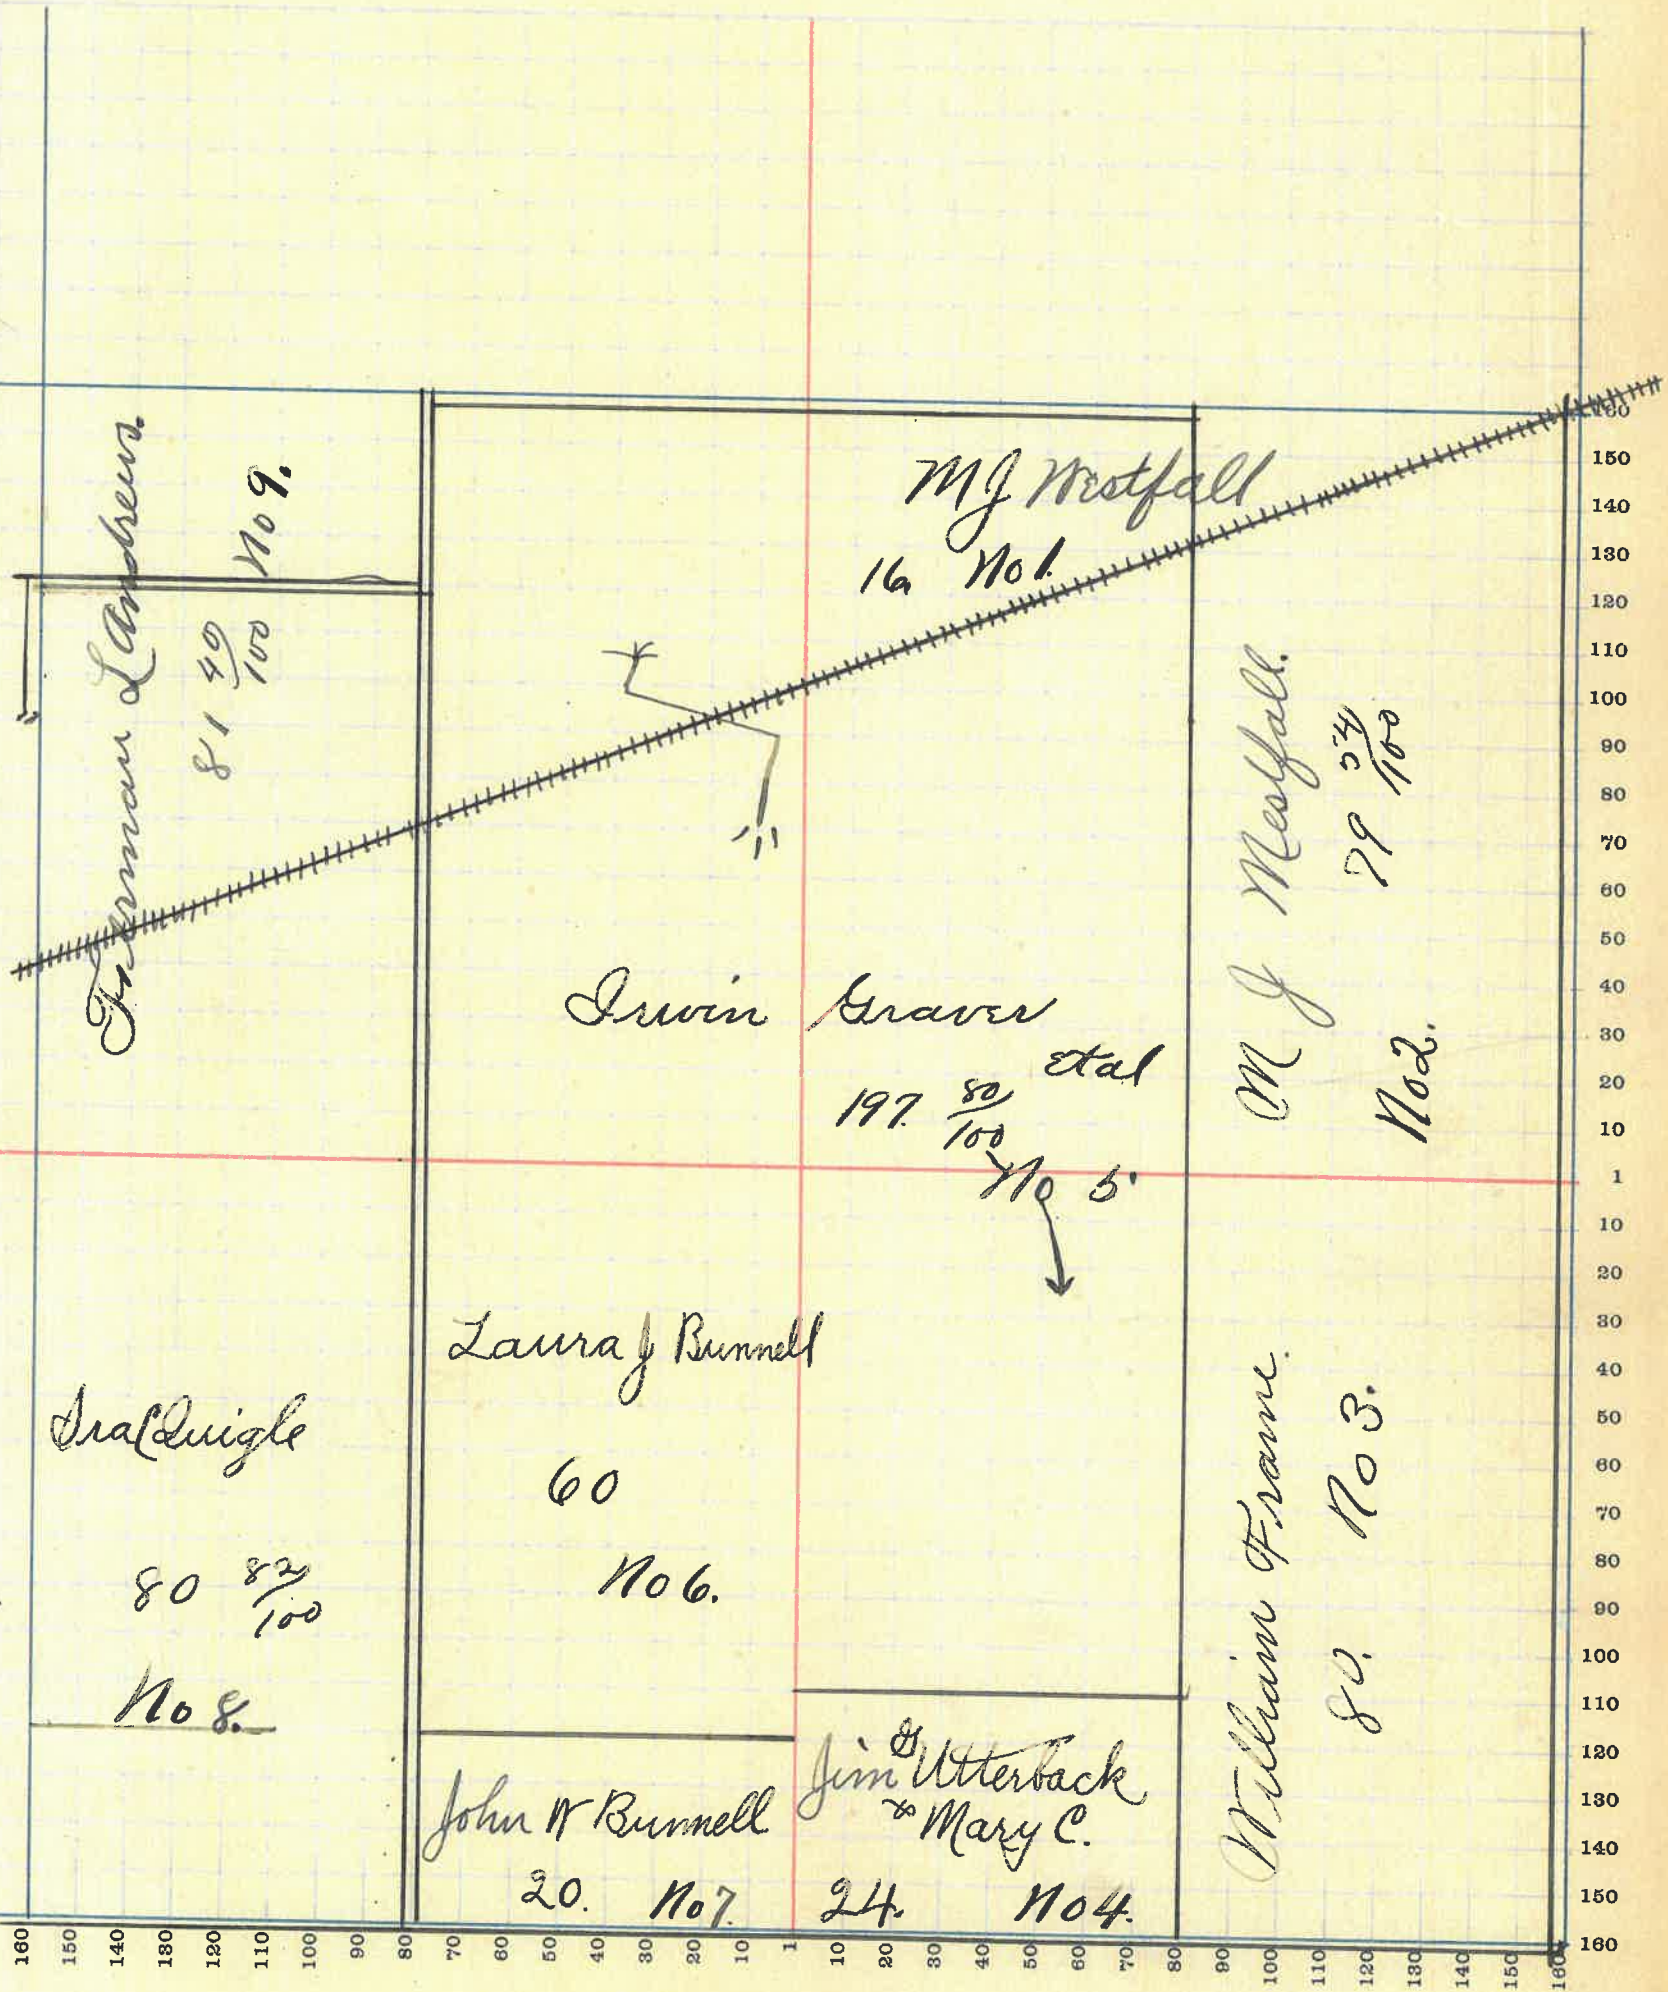 Freeman L Andrews.
81 49/100
No 9.
M J Westfall
16 No 1.
M J Westfall.
79 54/100
No 2.
Irwin Graver
et al
197. 80/100
No 5
Laura J Bunnell
60
No 6.
Ira C Quigle
80 82/100
No 8.
William Frame.
80. No 3.
John W Bunnell
20. No 7.
Jim G Utterback
& Mary C.
24. No 4.
160
150
140
130
120
110
100
90
80
70
60
50
40
30
20
10
1
10
20
30
40
50
60
70
80
90
100
110
120
130
140
150
160
160 150 140 130 120 110 100 90 80 70 60 50 40 30 20 10 1 10 20 30 40 50 60 70 80 90 100 110 120 130 140 150 160